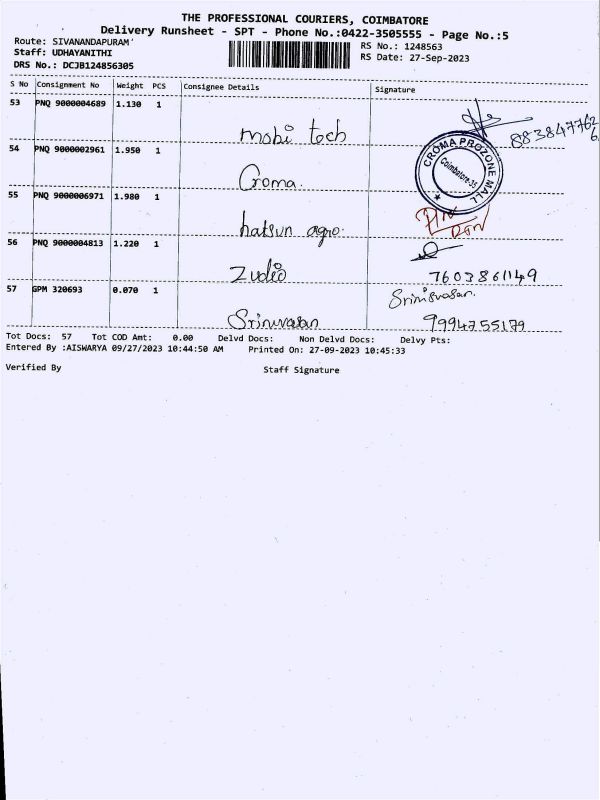 THE PROFESSIONAL COURIERS, COIMBATORE
Delivery Runsheet - SPT - Phone No.:0422-3505555 - Page No.:5
Route: SIVANANDAPURAM
Staff: UDHAYANITHI
DRS No.: DCJB124856305
RS No.: 1248563
RS Date: 27-Sep-2023
S No Consignment No Weight PCS Consignee Details Signature
53 PNQ 9000004689 1.130 1
mobi tech
54 PNQ 9000002961 1.950 1
Croma
CROMA PROZONE MALL
Coimbatore-35
55 PNQ 9000006971 1.980 1
hatsun agro
56 PNQ 9000004813 1.220 1
Zudio 7603861149
57 GPM 320693 0.070 1
Srinivasan
Srinivasan 9994755179
Tot Docs: 57 Tot COD Amt: 0.00 Delvd Docs: Non Delvd Docs: Delvy Pts:
Entered By :AISWARYA 09/27/2023 10:44:50 AM Printed On: 27-09-2023 10:45:33
Verified By Staff Signature